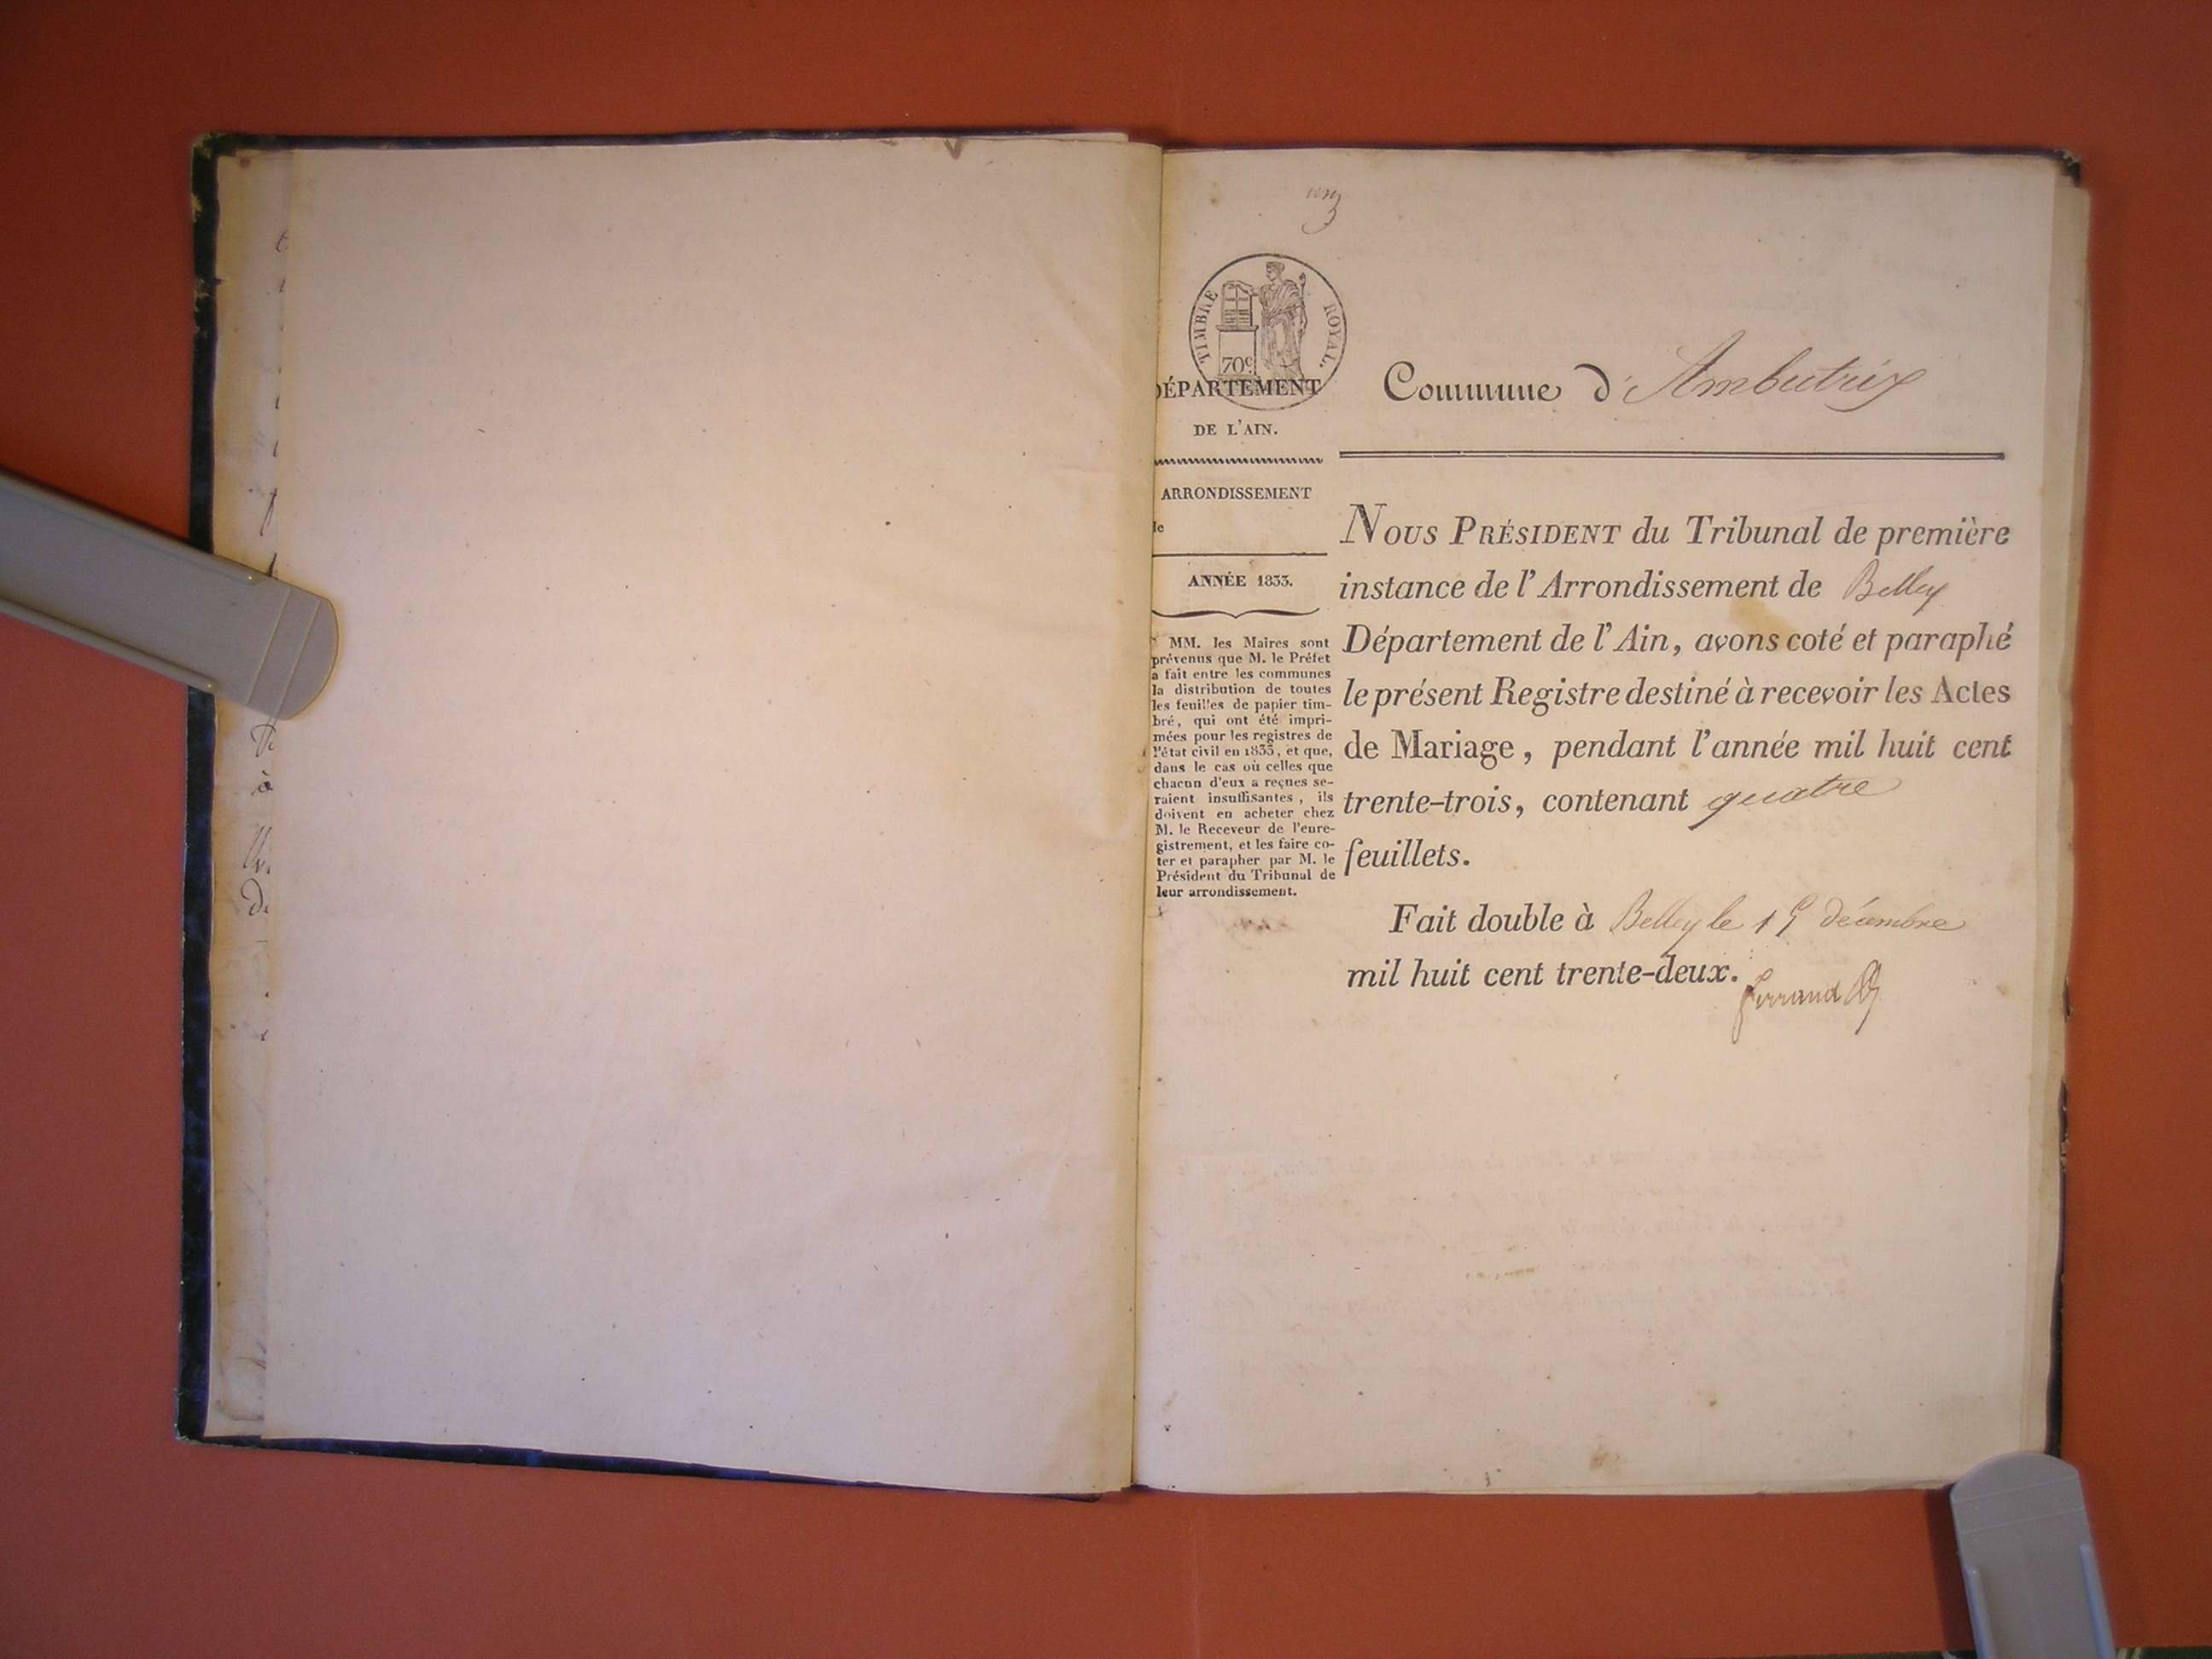 un
TIMBRE ROYAL.
70c
DÉPARTEMENT
DE L'AIN.
ARRONDISSEMENT
de
ANNÉE 1833.
MM. les Maires sont
prévenus que M. le Préfet
a fait entre les communes
la distribution de toutes
les feuilles de papier tim-
bré, qui ont été impri-
mées pour les registres de
l'état civil en 1833, et que,
dans le cas où celles que
chacun d'eux a reçues se-
raient insuffisantes, ils
doivent en acheter chez
M. le Receveur de l'enre-
gistrement, et les faire co-
ter et parapher par M. le
Président du Tribunal de
leur arrondissement.
Commune d'Ambutrix
NOUS PRÉSIDENT du Tribunal de première
instance de l'Arrondissement de Belley
Département de l'Ain, avons coté et paraphé
le présent Registre destiné à recevoir les Actes
de Mariage, pendant l'année mil huit cent
trente-trois, contenant quatre
feuillets.
Fait double à Belley le décembre
mil huit cent trente-deux.